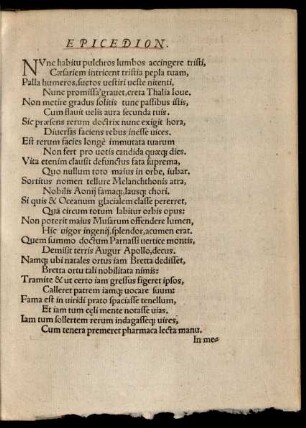 EPICEDION.
NVnc habitu pulchros lumbos accingere tristi,
Cæsariem intricent tristia pepla tuam,
Palla humeros, suetos uestiri ueste nitenti,
Nunc promissa grauet, creta Thalia Ioue.
Non metire gradus solitis tunc passibus istis,
Cum flauit uelis aura secunda tuis.
Sic præsens rerum doctrix nunc exigit hora,
Diuersas faciens rebus inesse uices.
Est rerum facies longè immutata tuarum
Non fert pro uotis candida quæq; dies.
Vita etenim clausit defunctus fata suprema,
Quo nullum toto maius in orbe, iubar.
Sortitus nomen tellure Melanchthonis atra,
Nobilis Aonij famaq; lausq; chori.
Si quis & Oceanum glacialem classe pererret,
Qua circum totum labitur orbis opus:
Non poterit maius Musarum offendere lumen,
Hic uigor ingenij, splendor, acumen erat.
Quem summo doctum Parnassi uertice montis,
Demisit terris Augur Apollo, decus.
Namq; ubi natales ortus iam Bretta dedisset,
Bretta ortu tali nobilitata nimis:
Tramite & ut certo iam gressus figeret ipsos,
Calleret patrem iamq; uocare suum:
Fama est in uiridi prato spaciasse tenellum,
Et iam tum cęli mente notasse uias,
Iam tum sollertem rerum indagasseq; uires,
Cum tenera premeret pharmaca lecta manu.
In me-